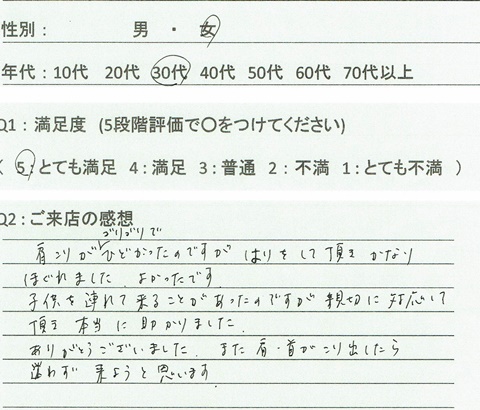 性別： 男 ・ 女
年代：10代 20代 30代 40代 50代 60代 70代以上
Q1：満足度 (5段階評価で〇をつけてください)
( 5：とても満足 4：満足 3：普通 2：不満 1：とても不満 )
Q2：ご来店の感想
ゴリゴリで
肩こりがひどかったのですが はりをして頂き かなり
ほぐれました. よかったです.
子供を連れて来ることがあったのですが 親切に対応して
頂き 本当に助かりました.
ありがとうございました. また肩・首がこり出したら
迷わず 来ようと思います.